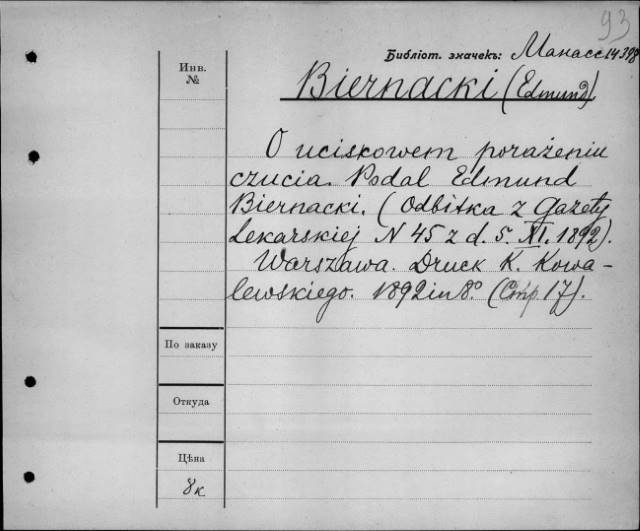 93
Библіот. значекъ: Манасс 14398
Инв.
№
Biernacki (Edmund)
O uciskowem porażeniu
czucia. Podal Edmund
Biernacki. (Odbitka z Gazety
Lekarskiej N 45 z d. 5. XI. 1892).
Warszawa. Druck K. Kowa-
lewskiego. 1892 in 8º. (Стр. 17).
По заказу
Откуда
Цѣна
8к